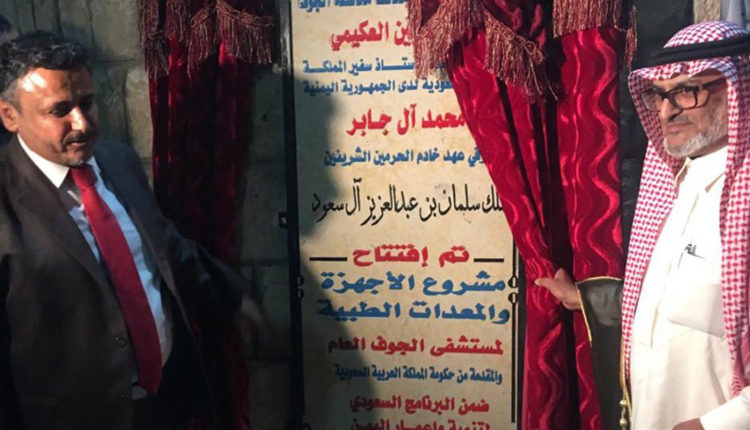 محافظة الجوف)
ين العكيمي
ستاذ سفير المملكة
ودية لدى الجمهورية اليمنية
محمد آل جابر
وفي عهد خادم الحرمين الشريفين
لك سلمان بن عبدالعزيز آل سعود
تم إفتتاح
مشروع الأجهزة
والمعدات الطبية
لمستشفى الجوف العام
والمقدمة من حكومة المملكة العربية السعودية
ضمن البرنامج السعودي
لتنمية وإعمار اليمن